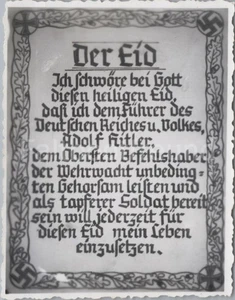 Der Eid
Ich schwöre bei Gott
diesen heiligen Eid,
daß ich dem Führer des
Deutschen Reiches u. Volkes,
Adolf Hitler,
dem Obersten Befehlshaber
der Wehrmacht unbeding-
ten Gehorsam leisten und
als tapferer Soldat bereit
sein will, jederzeit für
diesen Eid mein Leben
einzusetzen.